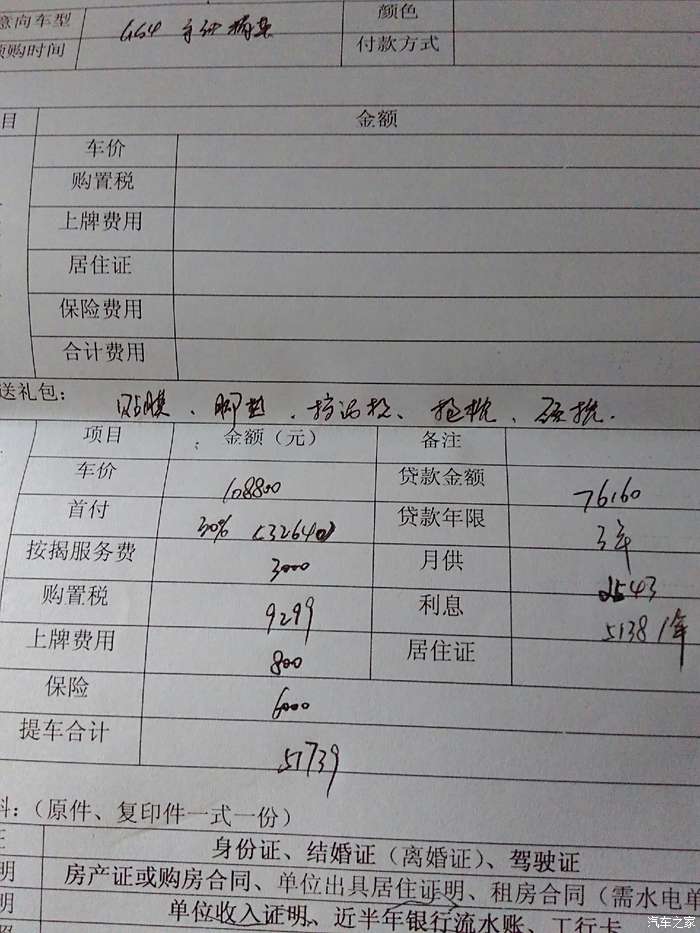 意向车型 GS4 颜色
预购时间 付款方式
目 金额
车价
购置税
上牌费用
居住证
保险费用
合计费用
送礼包： 贴膜、脚垫、挡泥板、
项目 金额（元） 备注
车价 108800 贷款金额 76160
首付 30% (32640) 贷款年限 3年
按揭服务费 3000 月供 2543
购置税 9299 利息 5138 1年
上牌费用 800 居住证
保险 6000
提车合计 51739
料：（原件、复印件一式一份）
证 身份证、结婚证（离婚证）、驾驶证
明 房产证或购房合同、单位出具居住证明、租房合同（需水电单
明 单位收入证明、近半年银行流水账、工行卡
汽车之家